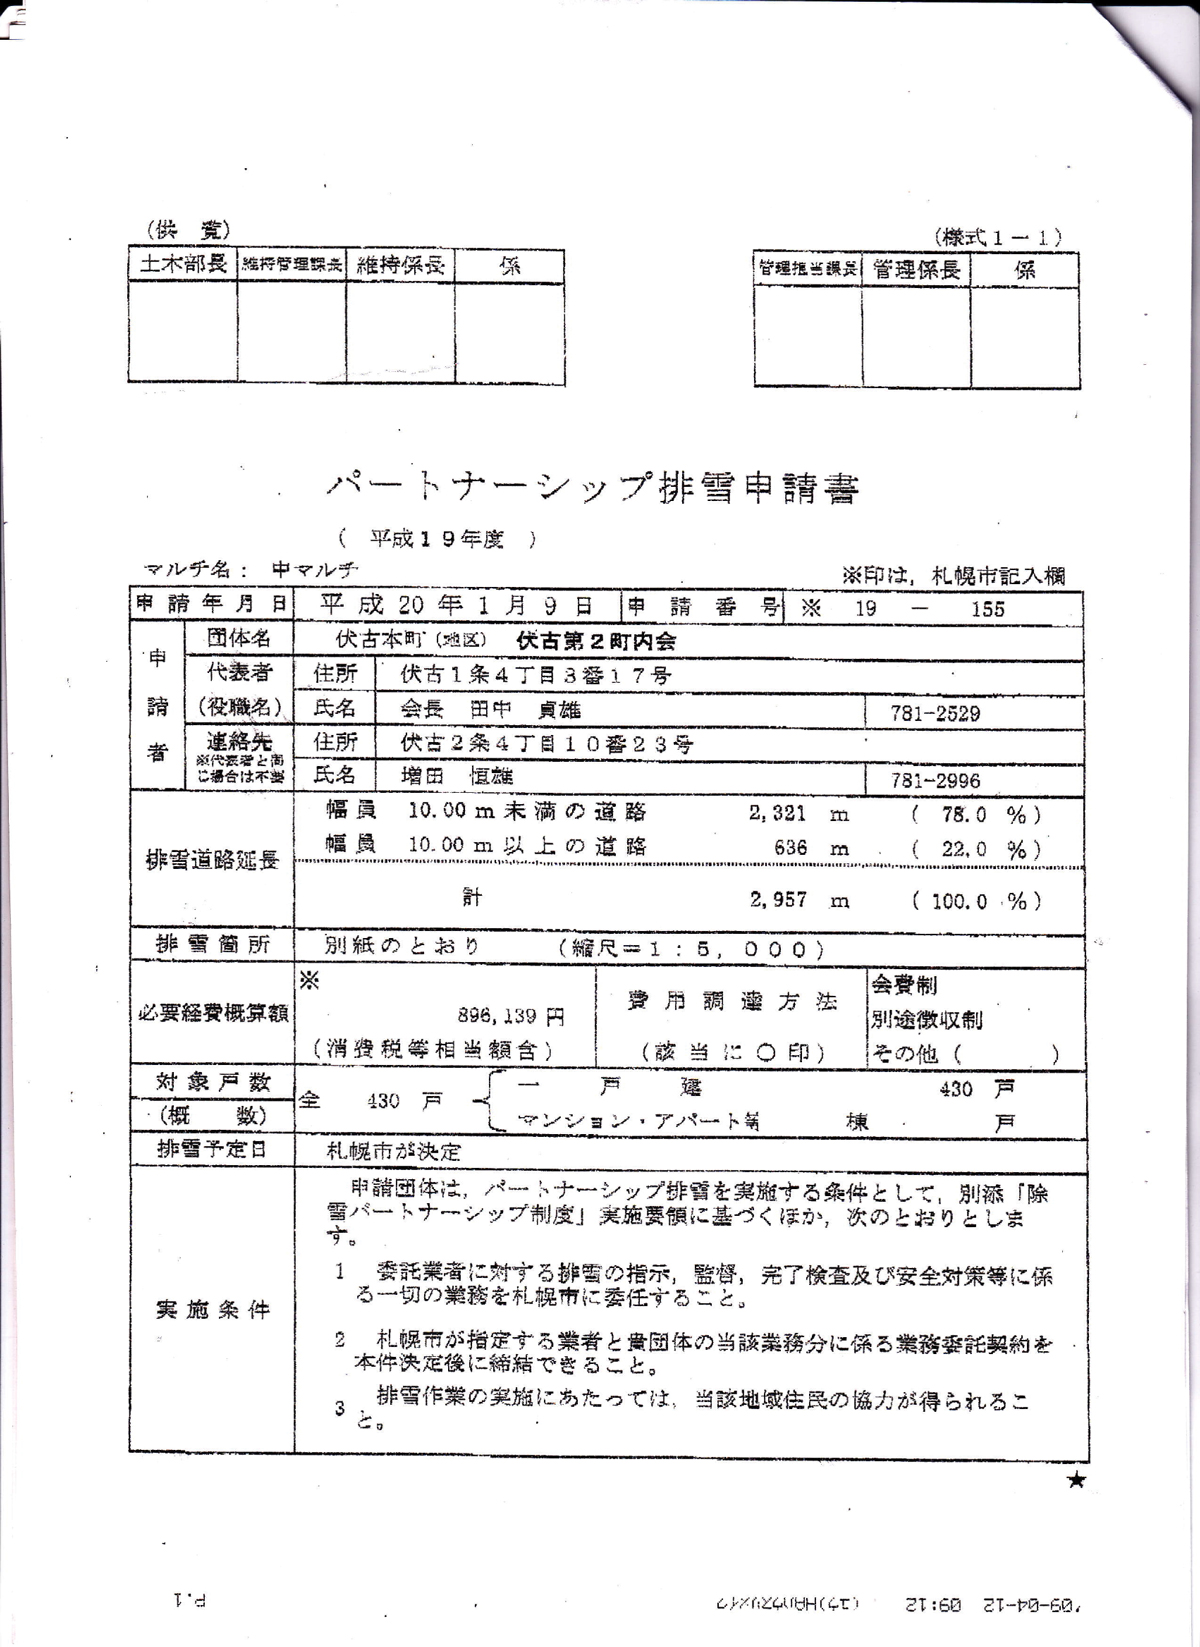 （供　覧）
（様式１－１）
土木部長 維持管理課長 維持係長 係
管理担当課長 管理係長 係
パートナーシップ排雪申請書
（　平成１９年度　）
マルチ名：　中マルチ
※印は，札幌市記入欄
申請年月日 平成20年1月9日 申請番号 ※ 19 － 155
申請者
団体名 伏古本町（地区） 伏古第２町内会
代表者 住所 伏古１条４丁目３番１７号
（役職名） 氏名 会長　田中　貞雄 781-2529
連絡先 住所 伏古２条４丁目１０番２３号
※代表者と同じ場合は不要 氏名 増田　恒雄 781-2996
排雪道路延長
幅員 10.00ｍ未満の道路 2,321 m （ 78.0 %）
幅員 10.00ｍ以上の道路 636 m （ 22.0 %）
計 2,957 m （ 100.0 %）
排雪箇所 別紙のとおり （縮尺＝１：５，０００）
必要経費概算額
※
896,139 円
（消費税等相当額含）
費用調達方法
（該当に〇印）
会費制
別途徴収制
その他（　　　　）
対象戸数
（概　数）
全 430 戸
一戸建 430 戸
マンション・アパート等 棟 戸
排雪予定日 札幌市が決定
実施条件
申請団体は，パートナーシップ排雪を実施する条件として，別添「除
雪パートナーシップ制度」実施要領に基づくほか，次のとおりとしま
す。
1　委託業者に対する排雪の指示，監督，完了検査及び安全対策等に係
る一切の業務を札幌市に委任すること。
2　札幌市が指定する業者と貴団体の当該業務分に係る業務委託契約を
本件決定後に締結できること。
3　排雪作業の実施にあたっては，当該地域住民の協力が得られるこ
と。
★
'09-04-12 09:12
P.1